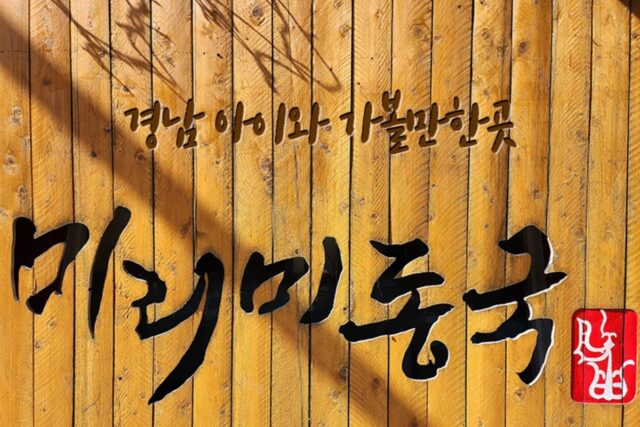 경남 아이와 가볼만한곳
미리미동국